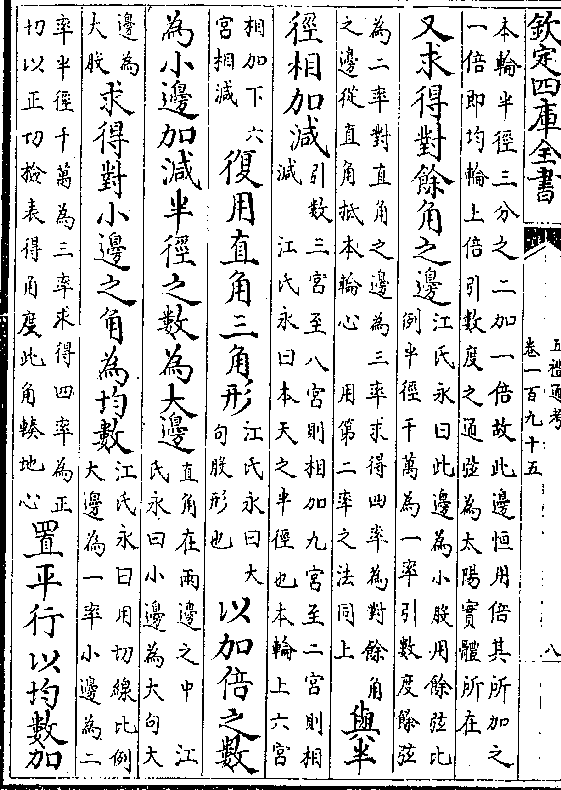 欽定四庫全書
五禮通考
卷一百九十五
八
本輪半徑三分之二加一倍故此邊恒用倍其所加之
一倍即均輪上倍引數度之通弦為太陽實體所在
又求得對餘角之邊
江氏永曰此邊為小股用餘弦比
例半徑千萬為一率引數度餘弦
為二率對直角之邊為三率求得四率為對餘角
之邊從直角抵本輪心　用第二率之法同上
與半
徑相加減
引數三宮至八宮則相加九宮至二宮則相
減　江氏永曰本天之半徑也本輪上六宮
相加下六
宮相減
復用直角三角形
江氏永曰大
句股形也
以加倍之數
為小邊加減半徑之數為大邊
直角在兩邊之中　江
氏永曰小邊為大句大
邊為
大股
求得對小邊之角為均數
江氏永曰用切線比例
大邊為一率小邊為二
率半徑千萬為三率求得四率為正
切以正切撿表得角度此角輳地心
置平行以均數加